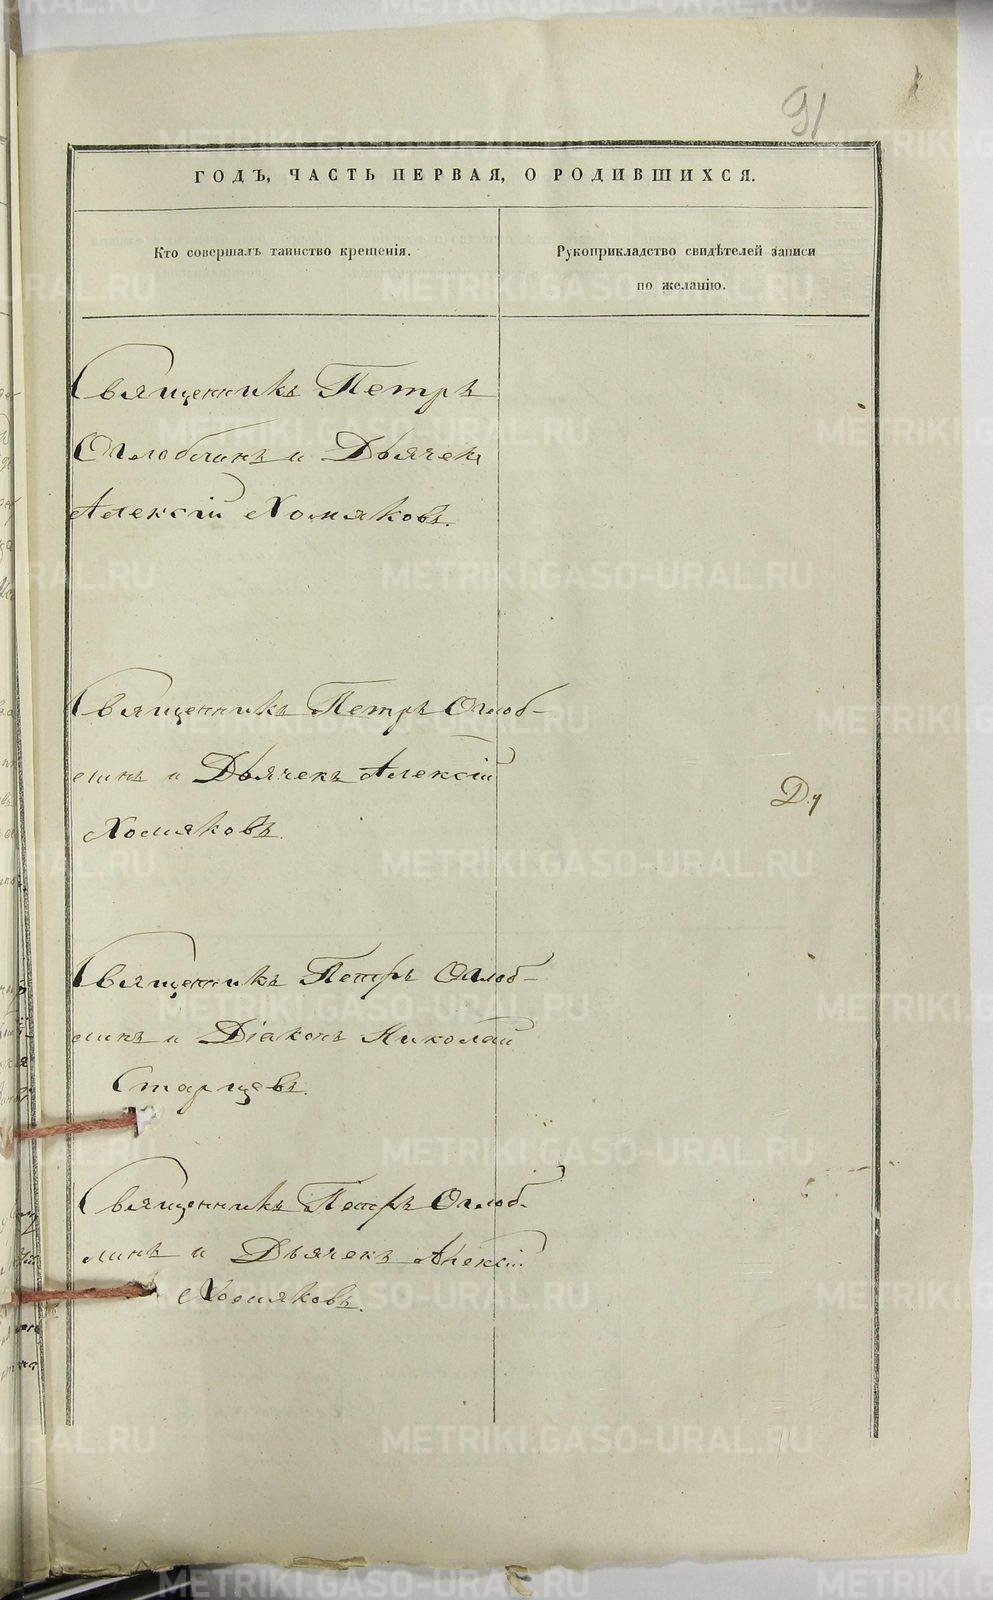 91
ГОДЪ, ЧАСТЬ ПЕРВАЯ, О РОДИВШИХСЯ.
Кто совершалъ таинство крещенія.
Рукоприкладство свидѣтелей записи
по желанію.
Священникъ Петръ
Оглоблинъ и Дьячекъ
Алексій Хомяковъ.
Священникъ Петръ Оглоб-
линъ и Дьячекъ Алексій
Хомяковъ.
Священникъ Петръ Оглоб-
линъ и Діаконъ Николай
Старцевъ.
Священникъ Петръ Оглоб-
линъ и Дьячекъ Алексій
Хомяковъ.
METRIKI.GASO-URAL.RU